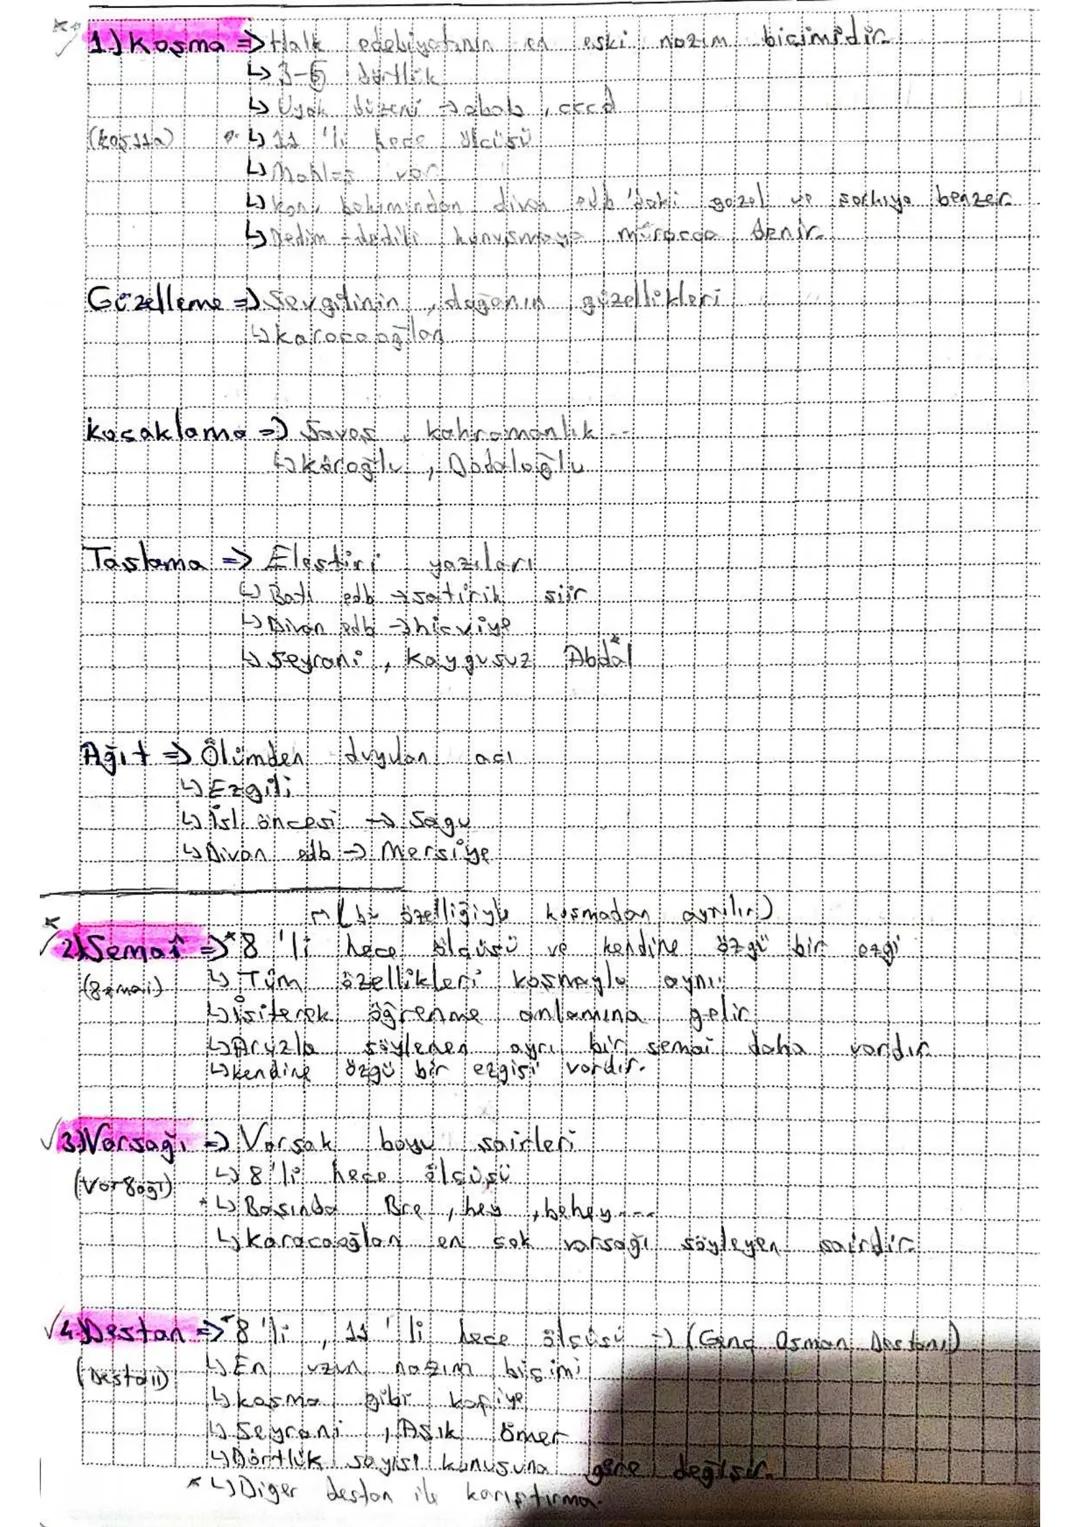 1) Koşma => Halk edebiyatının en eski nazım biçimidir.
↳ 3-5 dörtlük
↳ Uyak düzeni → abab, cccd
(koş11a) * ↳ 11 'li hece ölçüsü
↳ Mahlas var
↳ Konu bakımından divan edb 'daki gazel ve şarkıya benzer.
↳ Dedim - dedili konuşmaya müracaa denir.
Güzelleme => Sevgilinin, doğanın güzellikleri
↳ Karacaoğlan
Koçaklama => Savaş, kahramanlık...
↳ Köroğlu, Dadaloğlu
Taşlama => Eleştiri yazıları
↳ Batı edb → satirik şiir
↳ Divan edb → hicviye
↳ Seyrani, Kaygusuz Abdal
Ağıt => Ölümden duyulan acı
↳ Ezgili
↳ İsl. öncesi → Sagu
↳ Divan edb → Mersiye
(bu özelliğiyle koşmadan ayrılır)
2) Semaî => * 8 'li hece ölçüsü ve kendine özgü bir ezgi
(8emai) ↳ Tüm özellikleri koşmayla aynı
↳ İşiterek öğrenme anlamına gelir.
↳ Aruzla söylenen ayrı bir semai daha vardır.
↳ Kendine özgü bir ezgisi vardır.
3) Varsağı => Varsak boyu şairleri
(Var8ağı) ↳ 8'li hece ölçüsü
* ↳ Başında Bre, hey, behey...
↳ Karacaoğlan en çok varsağı söyleyen şairdir.
4) Destan => * 8 'li, 11 'li hece ölçüsü => (Genç Osman Destanı)
↳ En uzun nazım biçimi
↳ Koşma gibi kafiye
↳ Seyrani, Aşık Ömer
↳ Dörtlük sayısı konusuna göre değişir.
* ↳ Diğer destan ile karıştırma.